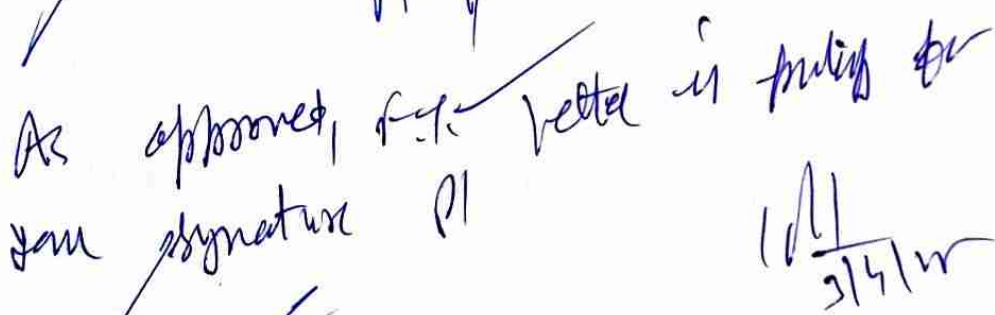 As approved, letter is putup for
your signature Pl